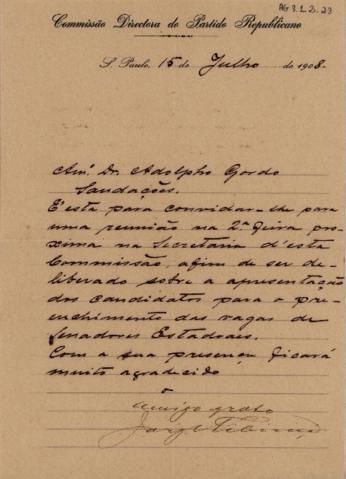 AG 3.1.2.23
Commissão Directora do Partido Republicano
S. Paulo, 15 de Julho de 1908.
Am.º Dr. Adolpho Gordo
Saudações.
É esta para convidar-lhe para
uma reunião na 2ª feira pro-
xima na Secretaria d'esta
Commissão, afim de ser de-
liberado sobre a apresentação
dos candidatos para o pre-
enchimento das vagas de
Senadores Estadoaes.
Com a sua presença ficará
muito agradecido
o
amigo grato
Jorge Tibiriçá